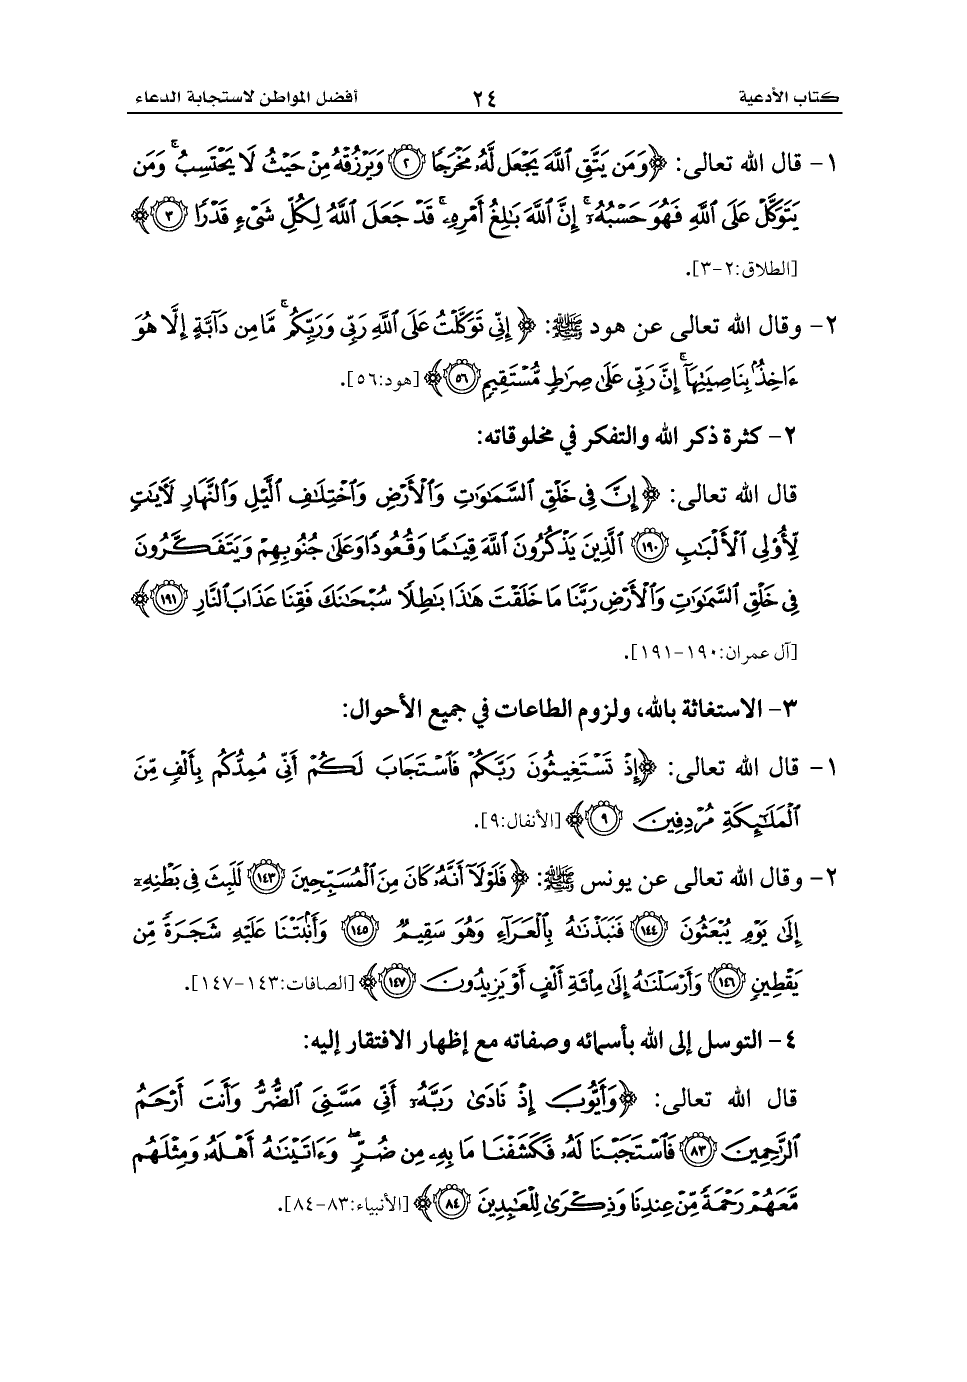 كتاب الأدعية ٢٤ أفضل المواطن لاستجابة الدعاء
١- قال الله تعالى: ﴿وَمَن يَتَّقِ ٱللَّهَ يَجْعَل لَّهُۥ مَخْرَجًا ۝٢ وَيَرْزُقْهُ مِنْ حَيْثُ لَا يَحْتَسِبُ ۚ وَمَن
يَتَوَكَّلْ عَلَى ٱللَّهِ فَهُوَ حَسْبُهُۥٓ ۚ إِنَّ ٱللَّهَ بَٰلِغُ أَمْرِهِۦ ۚ قَدْ جَعَلَ ٱللَّهُ لِكُلِّ شَىْءٍ قَدْرًا ۝٣﴾
[الطلاق:٢-٣].
٢- وقال الله تعالى عن هود ﷺ: ﴿إِنِّى تَوَكَّلْتُ عَلَى ٱللَّهِ رَبِّى وَرَبِّكُم ۚ مَّا مِن دَآبَّةٍ إِلَّا هُوَ
ءَاخِذٌۢ بِنَاصِيَتِهَآ ۚ إِنَّ رَبِّى عَلَىٰ صِرَٰطٍ مُّسْتَقِيمٍ ۝٥٦﴾ [هود:٥٦].
٢- كثرة ذكر الله والتفكر في مخلوقاته:
قال الله تعالى: ﴿إِنَّ فِى خَلْقِ ٱلسَّمَٰوَٰتِ وَٱلْأَرْضِ وَٱخْتِلَٰفِ ٱلَّيْلِ وَٱلنَّهَارِ لَءَايَٰتٍ
لِّأُو۟لِى ٱلْأَلْبَٰبِ ۝١٩٠ ٱلَّذِينَ يَذْكُرُونَ ٱللَّهَ قِيَٰمًا وَقُعُودًا وَعَلَىٰ جُنُوبِهِمْ وَيَتَفَكَّرُونَ
فِى خَلْقِ ٱلسَّمَٰوَٰتِ وَٱلْأَرْضِ رَبَّنَا مَا خَلَقْتَ هَٰذَا بَٰطِلًا سُبْحَٰنَكَ فَقِنَا عَذَابَ ٱلنَّارِ ۝١٩١﴾
[آل عمران:١٩٠-١٩١].
٣- الاستغاثة بالله، ولزوم الطاعات في جميع الأحوال:
١- قال الله تعالى: ﴿إِذْ تَسْتَغِيثُونَ رَبَّكُمْ فَٱسْتَجَابَ لَكُمْ أَنِّى مُمِدُّكُم بِأَلْفٍ مِّنَ
ٱلْمَلَٰٓئِكَةِ مُرْدِفِينَ ۝٩﴾ [الأنفال:٩].
٢- وقال الله تعالى عن يونس ﷺ: ﴿فَلَوْلَآ أَنَّهُۥ كَانَ مِنَ ٱلْمُسَبِّحِينَ ۝١٤٣ لَلَبِثَ فِى بَطْنِهِۦٓ
إِلَىٰ يَوْمِ يُبْعَثُونَ ۝١٤٤ فَنَبَذْنَٰهُ بِٱلْعَرَآءِ وَهُوَ سَقِيمٌ ۝١٤٥ وَأَنۢبَتْنَا عَلَيْهِ شَجَرَةً مِّن
يَقْطِينٍ ۝١٤٦ وَأَرْسَلْنَٰهُ إِلَىٰ مِا۟ئَةِ أَلْفٍ أَوْ يَزِيدُونَ ۝١٤٧﴾ [الصافات:١٤٣-١٤٧].
٤- التوسل إلى الله بأسمائه وصفاته مع إظهار الافتقار إليه:
قال الله تعالى: ﴿وَأَيُّوبَ إِذْ نَادَىٰ رَبَّهُۥٓ أَنِّى مَسَّنِىَ ٱلضُّرُّ وَأَنتَ أَرْحَمُ
ٱلرَّٰحِمِينَ ۝٨٣ فَٱسْتَجَبْنَا لَهُۥ فَكَشَفْنَا مَا بِهِۦ مِن ضُرٍّ ۖ وَءَاتَيْنَٰهُ أَهْلَهُۥ وَمِثْلَهُم
مَّعَهُمْ رَحْمَةً مِّنْ عِندِنَا وَذِكْرَىٰ لِلْعَٰبِدِينَ ۝٨٤﴾ [الأنبياء:٨٣-٨٤].